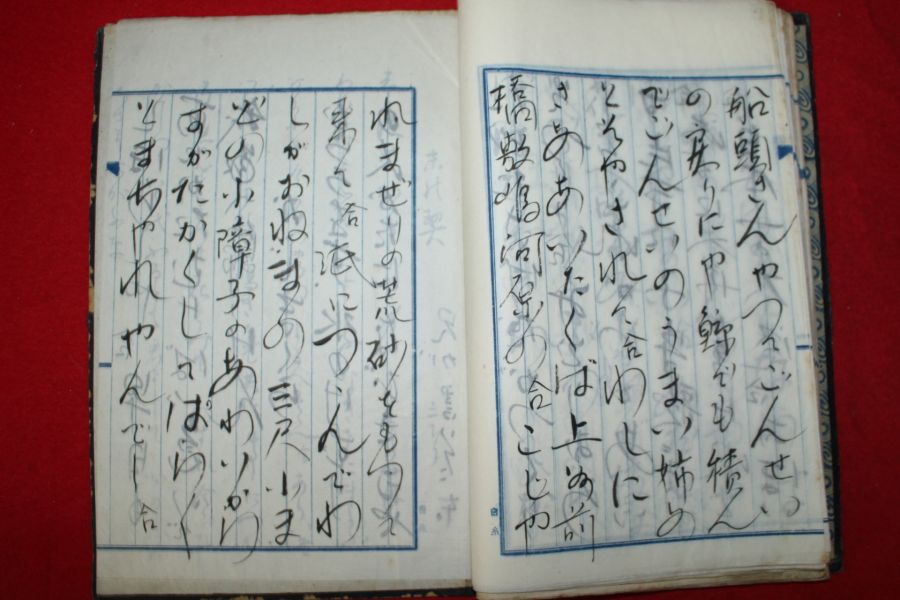 船頭さんやつてごんせい
の戻りにや鯨でも積ん
でごんせいのうまい姉の
とそやされて合わしに
さあのあいたくば上る前
橋敷嶋河原の合こじや
れまぜりの荒砂をもつて
来て合紙につゝんでわ
しがおねまの三尺小ま
どの小障子のあわいから
すがたかくしてぱら〱
とまちやれやんでし合